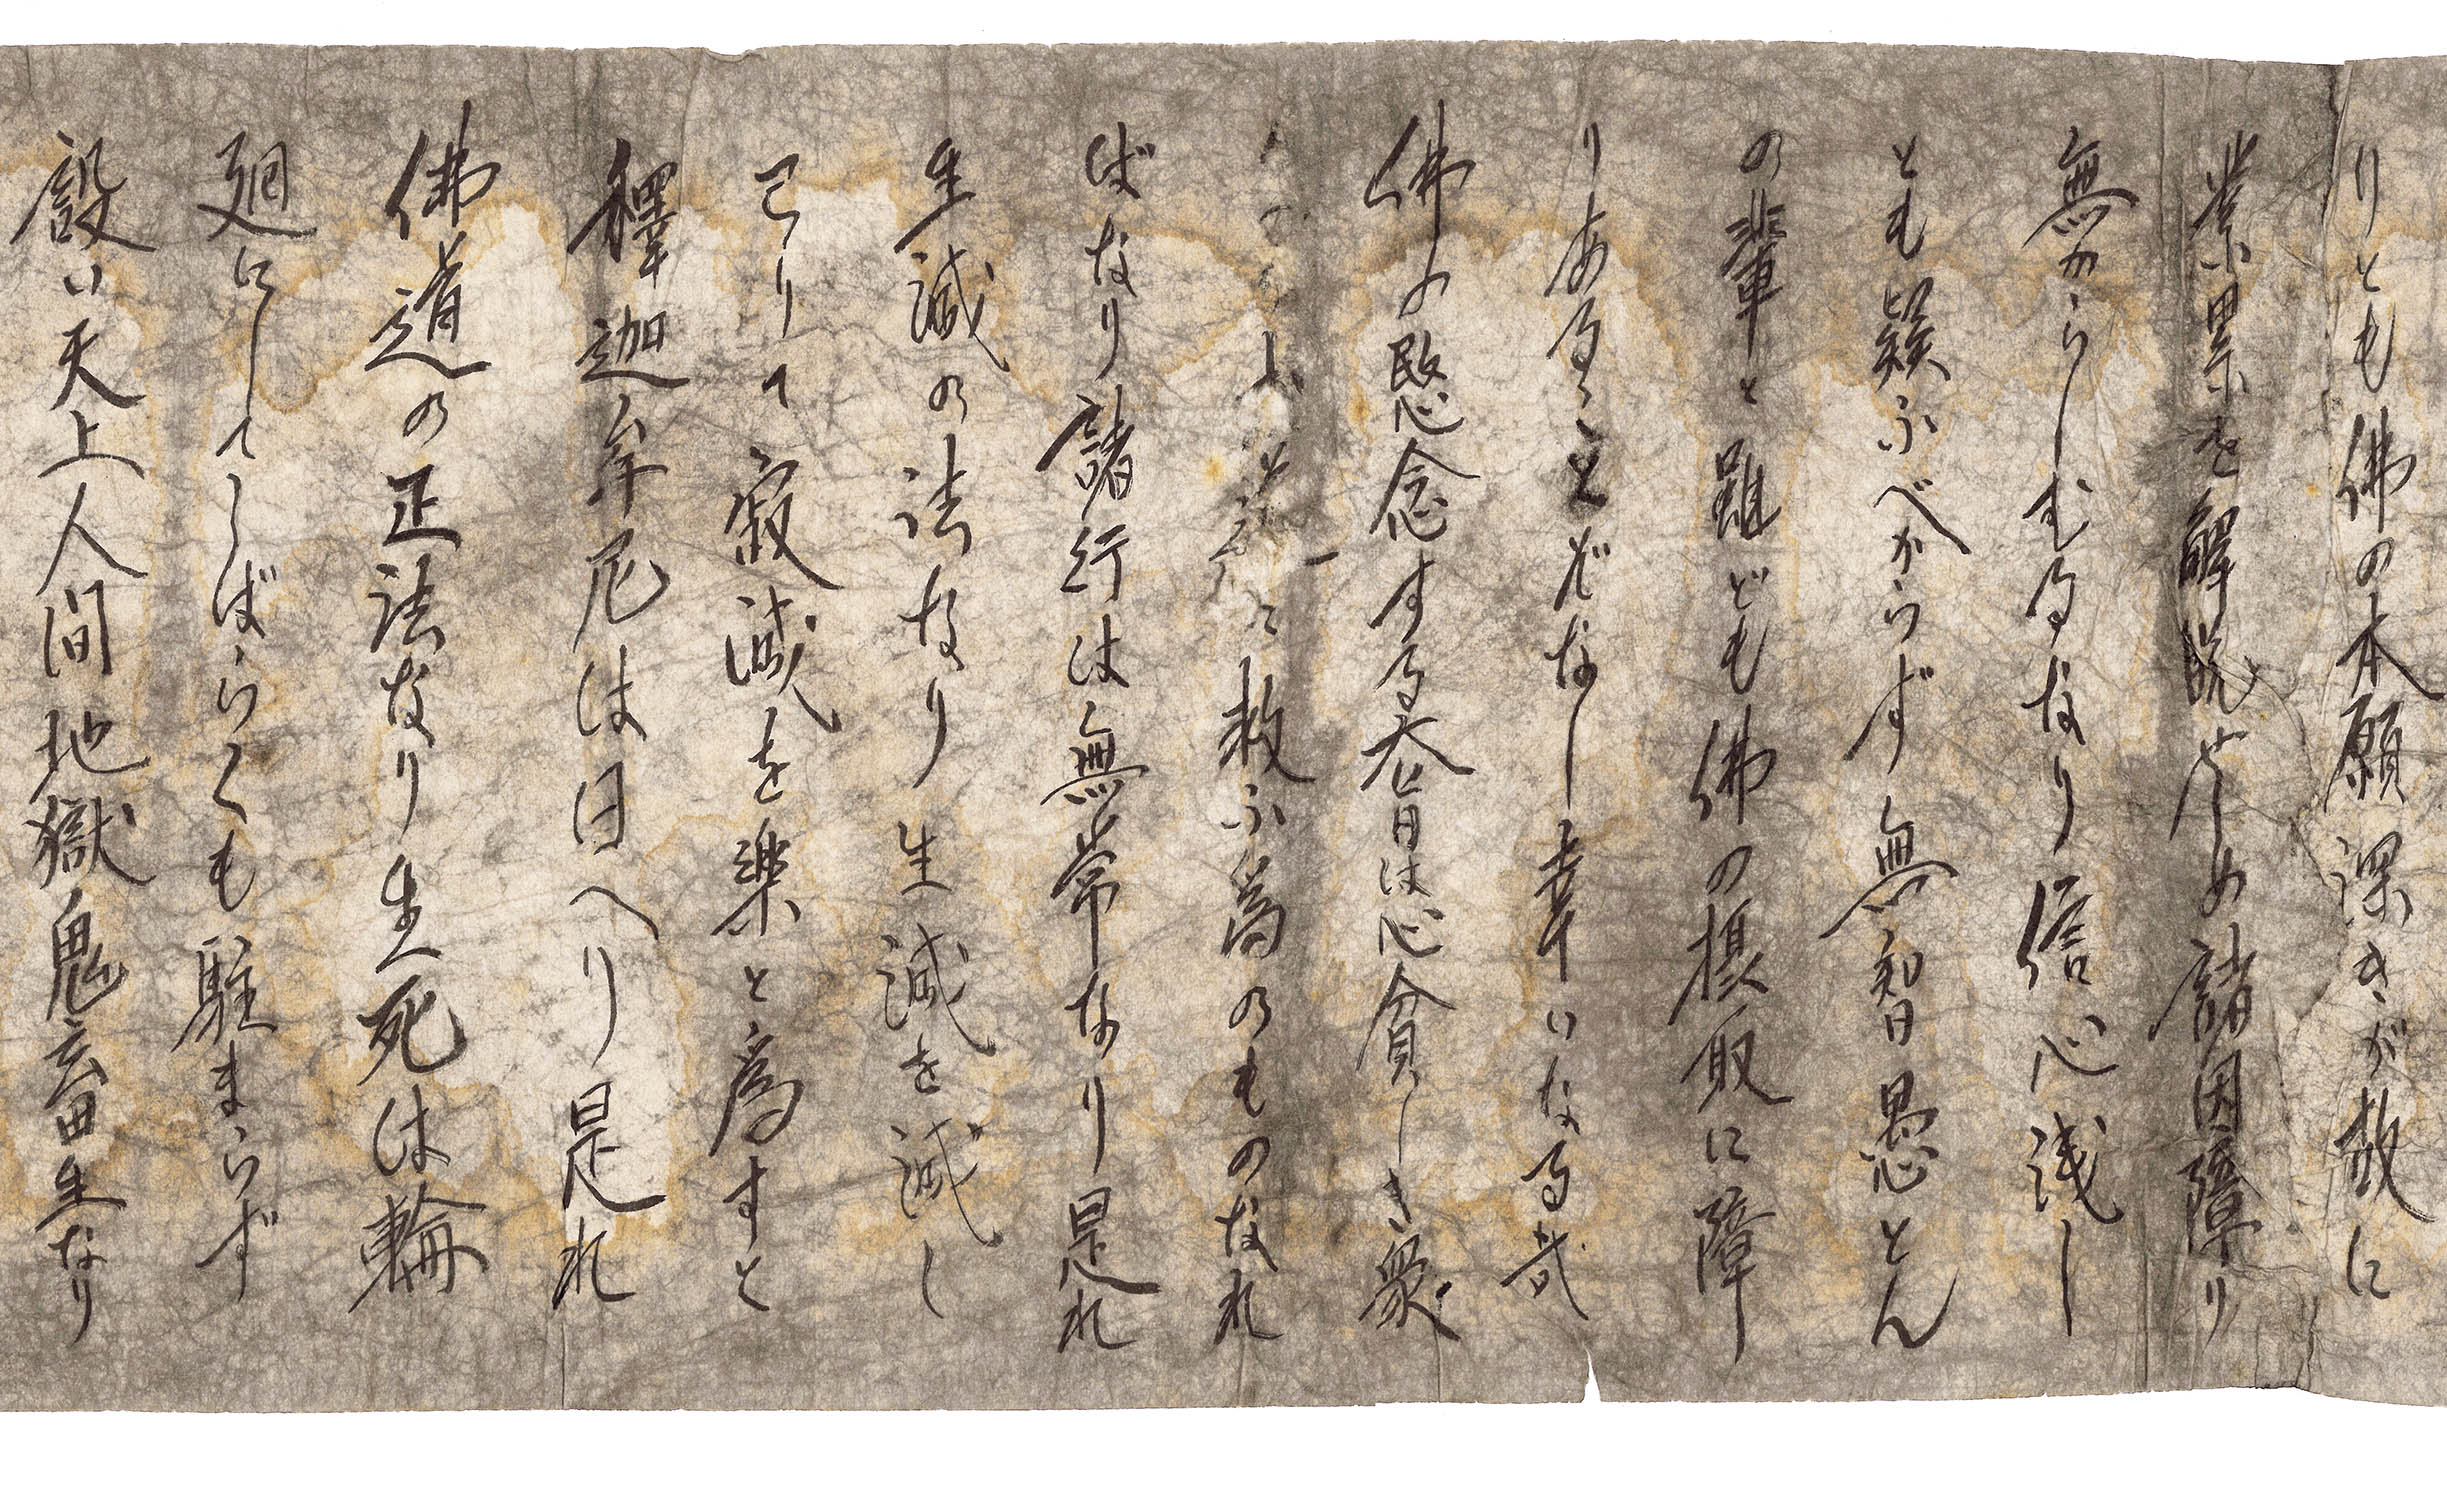 りとも佛の本願深きが故に
業累を解脱せしめ諸因障り
無からしむるなり信心浅し
とも疑ふべからず無智愚とん
の輩と雖ども佛の摂取に障
りあることぞなし幸いなる哉
佛の愍念する大旨は心貧しき衆
救ふ為のものなれ
ばなり諸行は無常なり是れ
生滅の法なり生滅を滅し
已りて寂滅を楽と為すと
釋迦牟尼は曰へり是れ
佛道の正法なり生死は輪
廻にしてしばらくも駐まらず
設い天上人间地獄鬼畜生なり